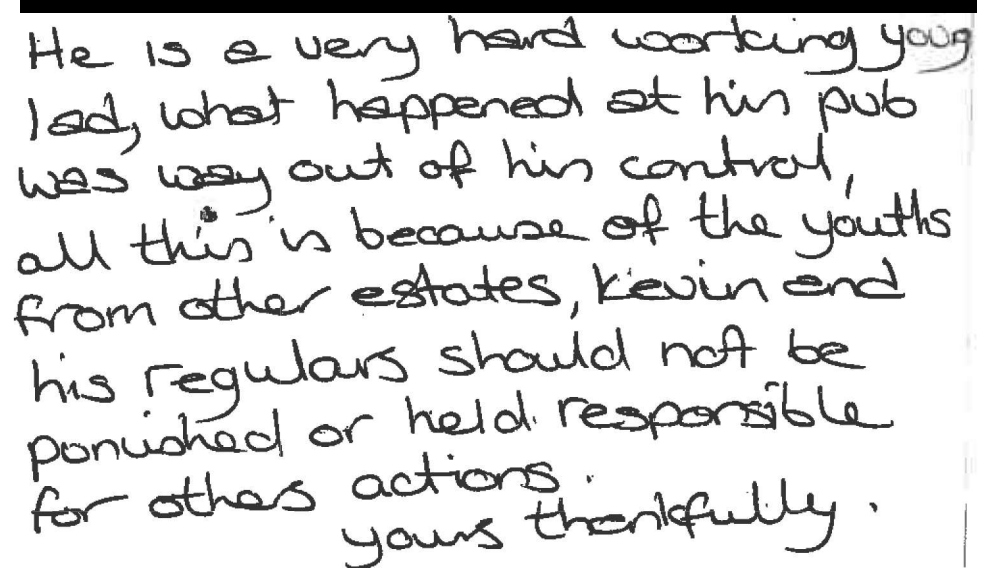 He is a very hard working young
lad, what happened at his pub
was way out of his control,
all this is because of the youths
from other estates, Kevin and
his regulars should not be
ponuished or held responsible
for others actions.
yours thankfully.